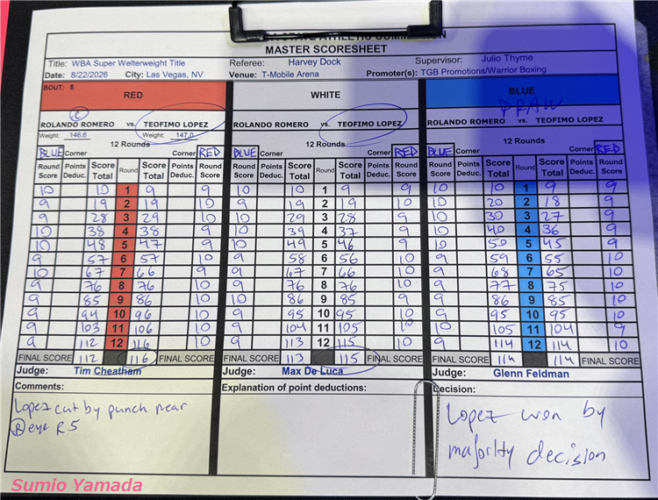 MASTER SCORESHEET
Title: WBA Super Welterweight Title Referee: Harvey Dock Supervisor: Julio Thyme
Date: 8/22/2026 City: Las Vegas, NV Venue: T-Mobile Arena Promoter(s): TGB Promotions/Warrior Boxing
BOUT: 8
RED WHITE BLUE
DRAW
C
ROLANDO ROMERO vs. TEOFIMO LOPEZ ROLANDO ROMERO vs. TEOFIMO LOPEZ ROLANDO ROMERO vs. TEOFIMO LOPEZ
Weight: 146.6 Weight: 147.0
12 Rounds 12 Rounds 12 Rounds
BLUE Corner Corner RED BLUE Corner Corner RED BLUE Corner Corner RED
Round Score Points Deduc. Score Total Round Score Total Points Deduc. Round Score Round Score Points Deduc. Score Total Round Score Total Points Deduc. Round Score Round Score Points Deduc. Score Total Round Score Total Points Deduc. Round Score
10 10 1 9 9 10 10 1 9 9 10 10 1 9 9
9 19 2 19 10 9 19 2 19 10 10 20 2 18 9
9 28 3 29 10 10 29 3 28 9 10 30 3 27 9
10 38 4 38 9 10 39 4 37 9 10 40 4 36 9
10 48 5 47 9 10 49 5 46 9 10 50 5 45 9
9 57 6 57 10 9 58 6 56 10 9 59 6 55 10
10 67 7 66 9 9 67 7 66 10 9 68 7 65 10
9 76 8 76 10 9 76 8 76 10 9 77 8 75 10
9 85 9 86 10 10 86 9 85 9 9 86 9 85 10
9 94 10 96 10 9 95 10 95 10 9 95 10 95 10
9 103 11 106 10 9 104 11 105 10 10 105 11 104 9
9 112 12 116 10 9 113 12 115 10 9 114 12 114 10
FINAL SCORE 112 116 FINAL SCORE FINAL SCORE 113 115 FINAL SCORE FINAL SCORE 114 114 FINAL SCORE
Judge: Tim Cheatham Judge: Max De Luca Judge: Glenn Feldman
Comments: Explanation of point deductions: Decision:
Lopez cut by punch near
R eye R5
Lopez won by
majority decision
Sumio Yamada